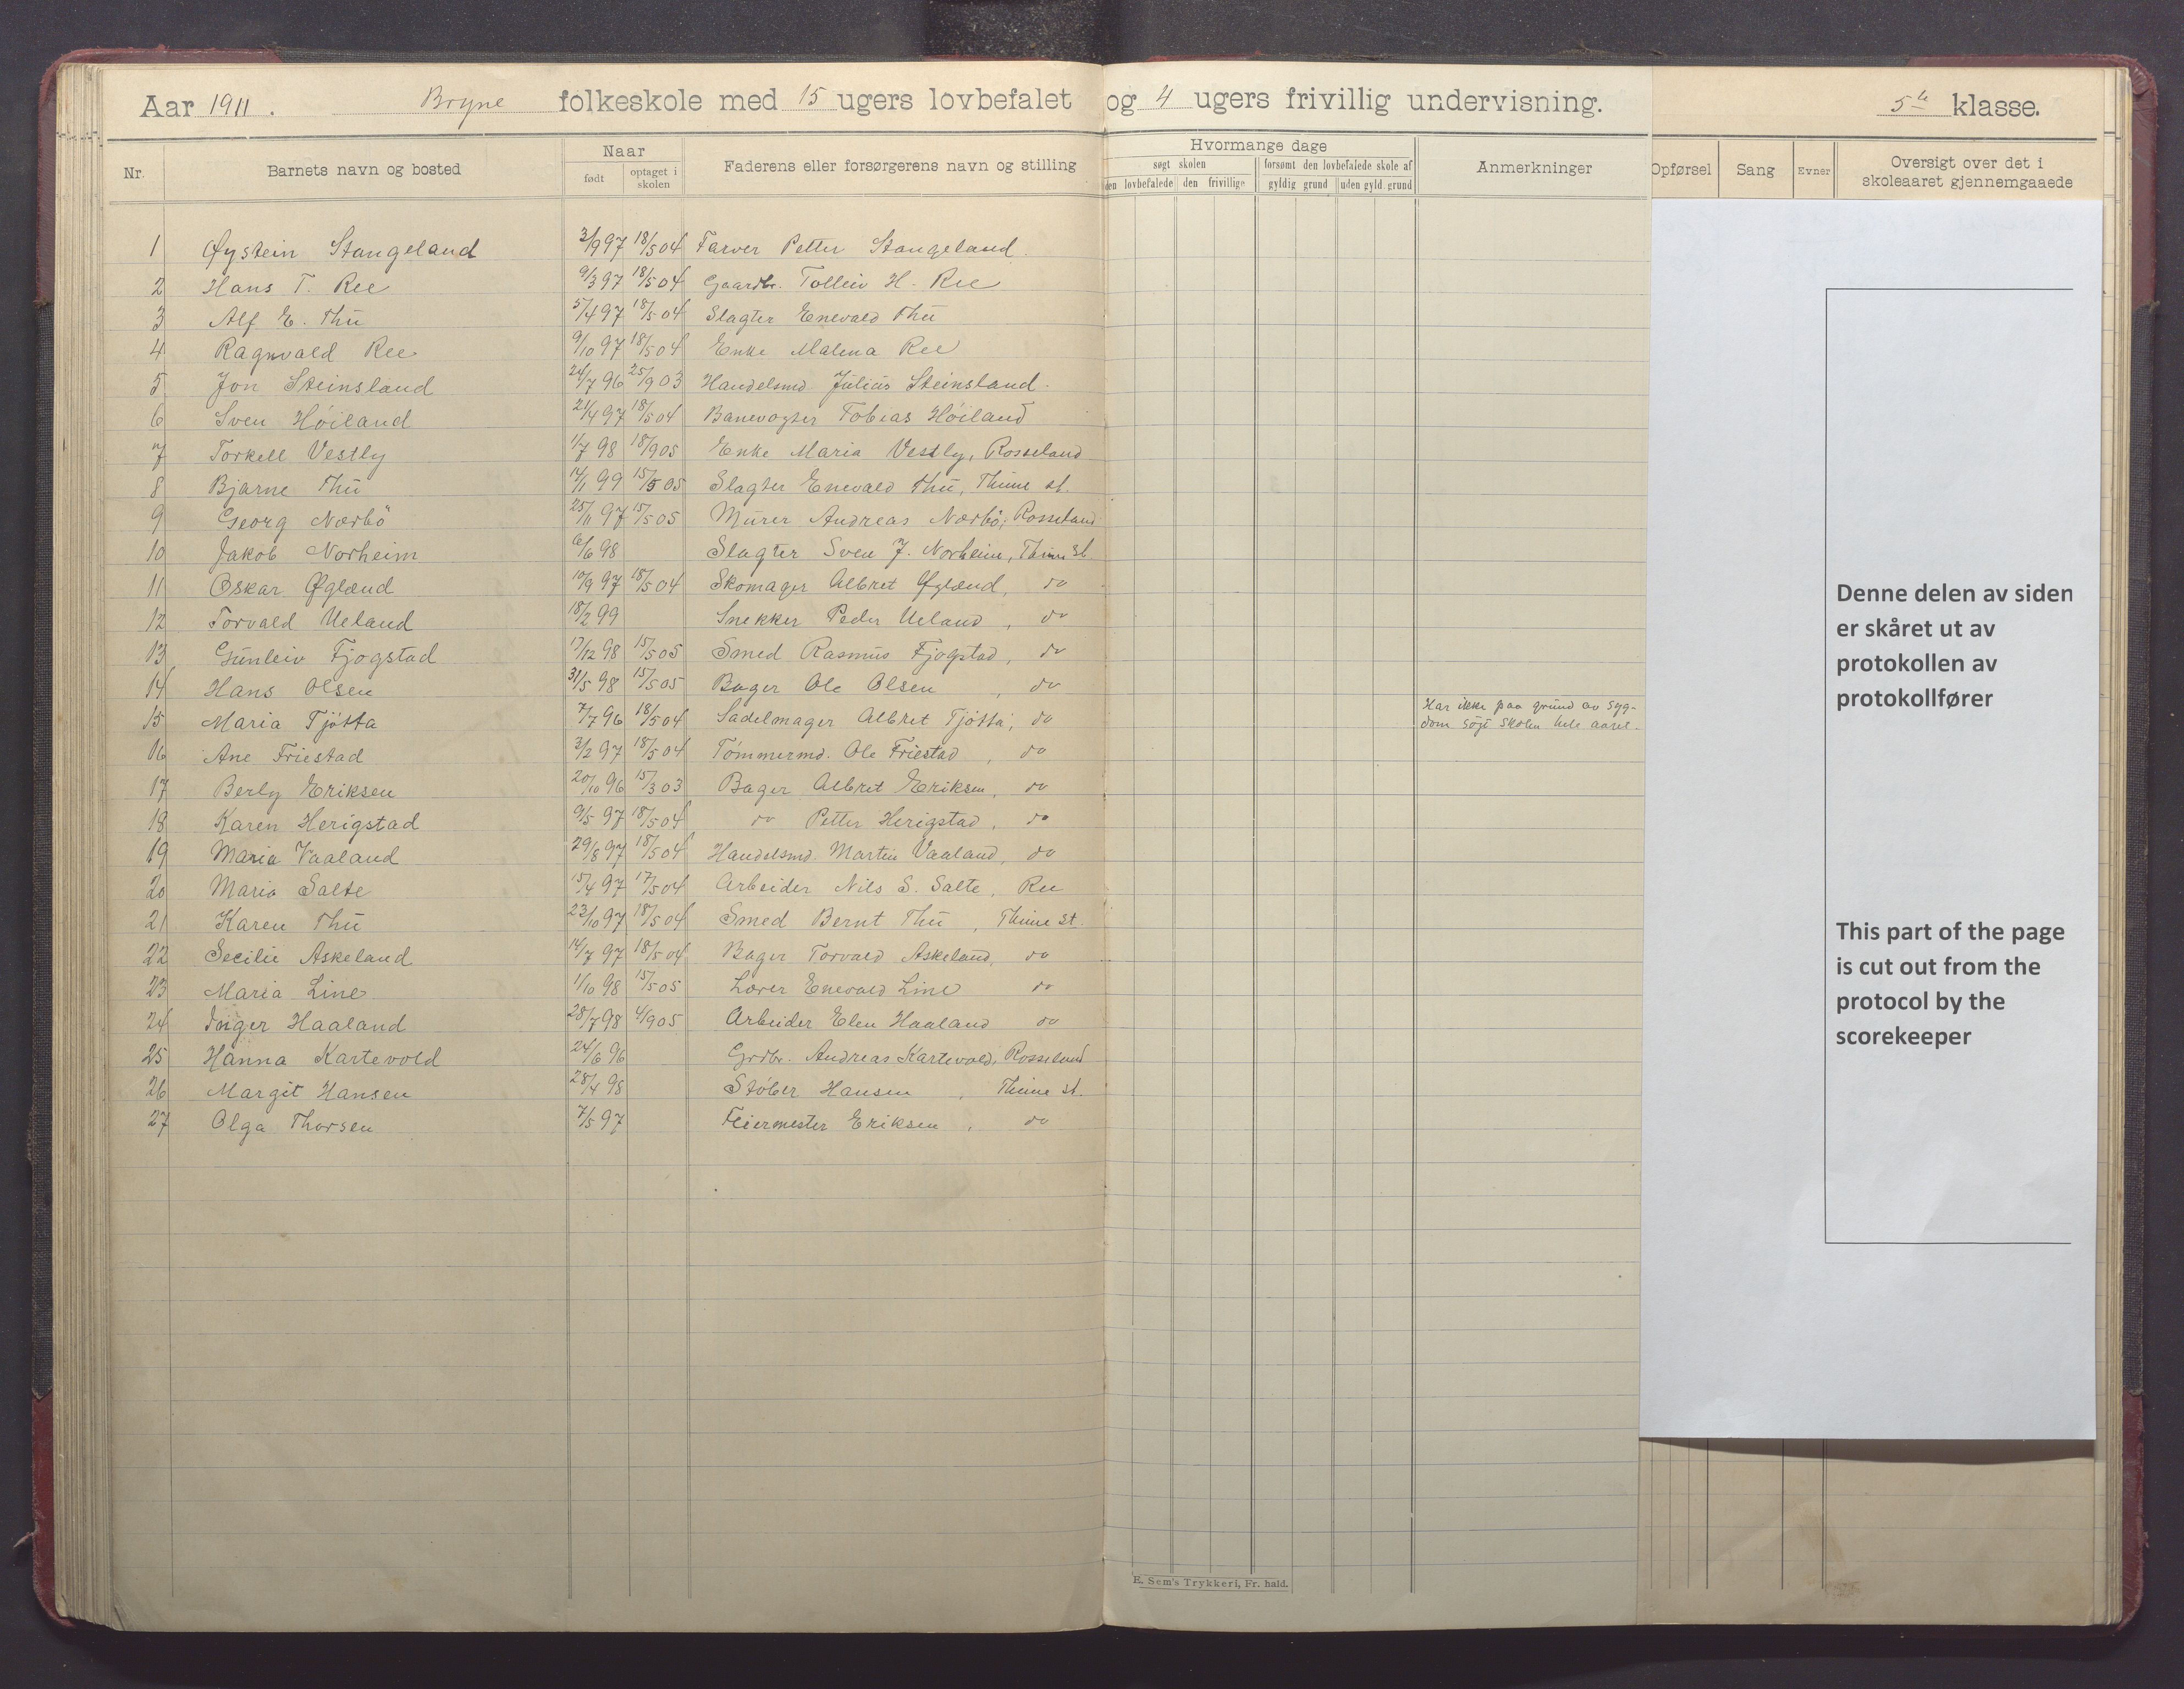 Aar 1911. Bryne folkeskole med 15 ugers lovbefalet og 4 ugers frivillig undervisning. 5te klasse.
Nr. Barnets navn og bosted Naar født optaget i skolen Faderens eller forsørgerens navn og stilling Hvormange dage søgt skolen den lovbefalede den frivillige forsømt den lovbefalede skole af gyldig grund uden gyld. grund Anmerkninger Opførsel Sang Evner Oversigt over det i skoleaaret gjennemgaaede
1 Øystein Stangeland 3/9 97 18/5 04 Farver Petter Stangeland
2 Hans T. Ree 9/3 97 18/5 04 Gaardbr. Tolleiv H. Ree
3 Alf E. Thu 5/4 97 18/5 04 Slagter Enevald Thu
4 Ragnvald Ree 9/10 97 18/5 04 Enke Malena Ree
5 Jon Steinsland 24/7 96 25/9 03 Handelsmd. Julius Steinsland.
6 Sven Höiland 21/4 97 18/5 04 Banevogter Tobias Höiland
7 Torkell Vestly 1/7 98 18/9 05 Enke Maria Vestly, Rosseland
8 Bjarne Thu 14/1 99 15/5 05 Slagter Enevald Thu, Thime st.
9 Georg Nærbö 25/11 97 15/5 05 Murer Andreas Nærbö, Rosseland
10 Jakob Norheim 6/6 98 Slagter Sven J. Norheim, Thime st.
11 Oskar Øglænd 10/9 97 18/5 04 Skomager Albret Øglænd, do
12 Torvald Ueland 18/2 99 Snekker Peder Ueland, do
13 Gunleiv Fjogstad 17/12 98 15/5 05 Smed Rasmus Fjogstad, do
14 Hans Olsen 31/5 98 15/5 05 Bager Ole Olsen, do
15 Maria Tjötta 7/7 96 18/5 04 Sadelmager Albret Tjötta, do Har ikke paa grund av syg-
dom sögt skolen hele aaret.
16 Ane Friestad 3/2 97 18/5 04 Tömmermd. Ole Friestad, do
17 Berly Eriksen 20/10 96 15/3 03 Bager Albret Eriksen, do
18 Karen Herigstad 9/5 97 18/5 04 do Petter Herigstad, do
19 Maria Vaaland 29/8 97 18/5 04 Handelsmd. Martin Vaaland, do
20 Maria Salte 15/4 97 17/5 04 Arbeider Nils S. Salte, Ree
21 Karen Thu 23/10 97 18/5 04 Smed Bernt Thu, Thime st.
22 Secilie Askeland 14/7 97 18/5 04 Bager Torvald Askeland, do
23 Maria Line 1/10 98 15/5 05 Lærer Enevald Line do
24 Inger Haaland 28/7 98 4/9 05 Arbeider Elen Haaland do
25 Hanna Kartevold 24/6 96 Grdbr. Andreas Kartevold, Rosseland
26 Margit Hansen 28/4 98 Stöber Hansen, Thime st.
27 Olga Thorsen 7/5 97 Feiermester Eriksen, do
E. Sem's Trykkeri, Fr. hald.
Denne delen av siden
er skåret ut av
protokollen av
protokollfører
This part of the page
is cut out from the
protocol by the
scorekeeper